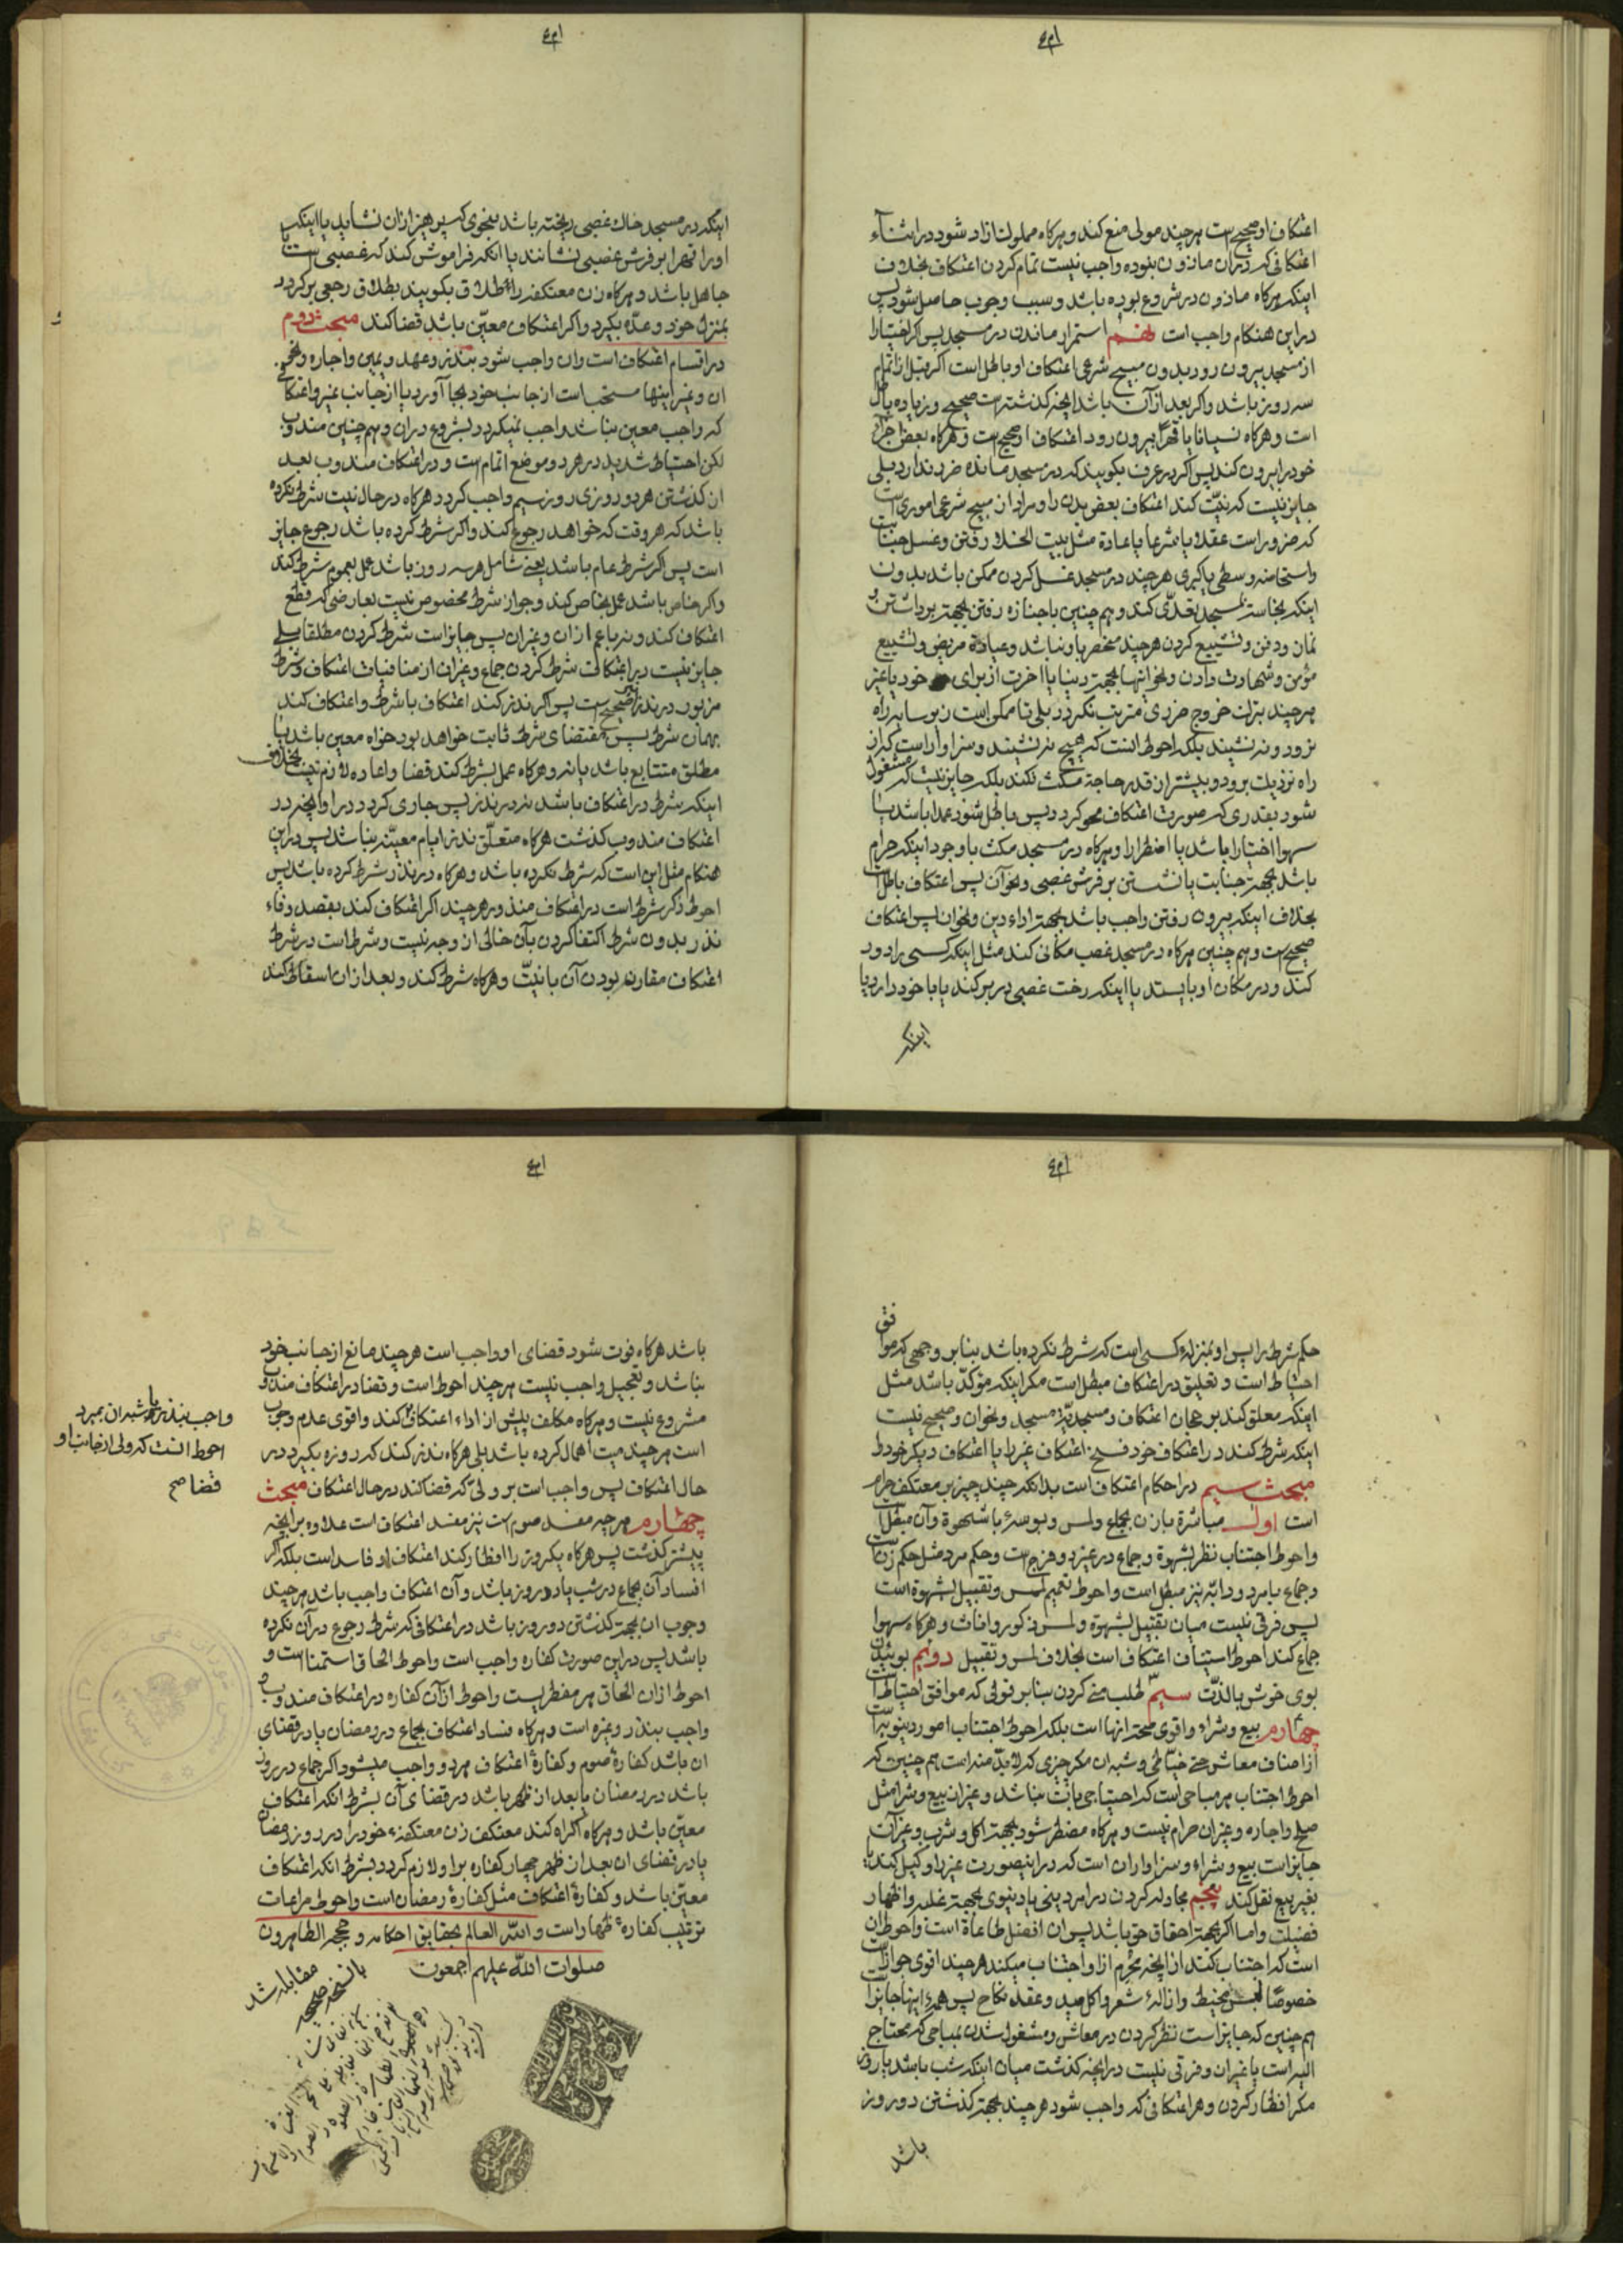 اعتکاف او صحیح است هر چند مولی منع کند و هرکاه مملوک ازاد شود در اثناء
اعتکافی که در ان ماذون نبوده واجب نیست تمام کردن اعتکاف بخلاف
اینکه هرکاه ماذون در شروع بوده باشد و سبب وجوب حاصل شود پس
در این هنکام واجب است هفتم استمرار ماندن در مسجد پس اکر اختیارا
از مسجد بیرون رود بدون مبیح شرعی اعتکاف او باطل است اکر قبل از اتمام
سه روز باشد و اکر بعد از آن باشد انچه کذشته است صحیح و زیاده باطل
است و هرکاه نسیانا یا قهرا بیرون رود اعتکاف او صحیح است و هرکاه بعض اجزای
خود را بیرون کند پس اکر در عرف بکویند که در مسجد مانده ضرر ندارد بلی
جایز نیست که نیّت کند اعتکاف بعض بدن را و مراد از مبیح شرعی اموری است
که ضرور است عقلا یا شرعا یا عادة مثل بیت الخلا رفتن و غسل جنابت
و استحاضه وسطی یا کبری هر چند در مسجد غسل کردن ممکن باشد بدون
اینکه نجاست بمسجد تعدّی کند و هم چنین با جنازه رفتن بجهة برداشتن و
نماز و دفن و تشییع کردن هر چند منحصر باو نباشد و عیادة مریض و تشییع
مؤمن و شهادت دادن و نحو اینها بجهة دنیا یا اخرت از برای خود یا غیر
هر چند بترک خروج ضرری مترتب نکردد بلی تا ممکن است زیر سایه راه
نرود و نه نشیند بلکه احوط انست که هیچ نه نشیند و سزاوار است که از
راه نزدیک برود و بیشتر از قدر حاجة مکث نکند بلکه جایز نیست که مشغول
شود بقدری که صورت اعتکاف محو کردد پس باطل شود عمدا باشد یا
سهوا اختیارا باشد یا اضطرارا و هرکاه در مسجد مکث با وجود اینکه حرام
باشد بجهة جنابت یا نشستن بر فرش غصبی و نحو آن پس اعتکاف باطل است
بخلاف اینکه بیرون رفتن واجب باشد بجهة اداء دین و نحو ان پس اعتکاف
صحیح است و هم چنین هرکاه در مسجد غصب مکانی کند مثل اینکه کسی را دور
کند و در مکان او بایستد یا اینکه رخت غصبی در بر کند یا با خود دارد یا
اینکه
اینکه در مسجد خاک غصبی ریخته باشد بنحوی که پرهیز از ان نشاید یا اینکه
او را قهرا بر فرش غصبی نشانند یا انکه فراموش کند که غصبی است یا
جاهل باشد و هرکاه زن معتکفه را طلاق بکویند بطلاق رجعی برکردد
بمنزل خود و عدّه بکیرد و اکر اعتکاف معیّن باشد قضا کند مبحث دوم
در اقسام اعتکاف است و ان واجب شود بنذر و عهد و یمین و اجاره و نحو
ان و غیر اینها مستحب است از جانب خود بجا آورد یا از جانب غیر و اعتکافی
که واجب معین نباشد واجب نمیکردد بشروع در ان و هم چنین مندوب
لکن احتیاط شدید در هر دو موضع اتمام است و در اعتکاف مندوب بعد
از کذشتن هر دو روزی روز سیم واجب کردد هرکاه در حال نیت شرط نکرده
باشد که هر وقت که خواهد رجوع کند و اکر شرط کرده باشد رجوع جایز
است پس اکر شرط عام باشد یعنی شامل هر سه روز باشد عمل بعموم شرط کند
و اکر خاص باشد عمل بخاص کند و جواز شرط مخصوص نیست بعارضی که قطع
اعتکاف کند و نه باعم از ان و غیر ان پس جایز است شرط کردن مطلقا بلی
جایز نیست در اعتکاف شرط کردن جماع و غیر ان از منافیات اعتکاف و شرط
مزبور در نذر نیز صحیح است پس اکر نذر کند اعتکاف با شرط و اعتکاف کند
بهمان شرط پس مقتضای شرط ثابت خواهد بود خواه معین باشد یا
مطلق متتابع باشد یا نه و هرکاه عمل بشرط کند قضا و اعاده لازم نیست بخلاف
اینکه شرط در اعتکاف باشد نه در نذر پس جاری کردد در او انچه در
اعتکاف مندوب کذشت هرکاه متعلّق نذر ایام معیّنه نباشد پس در این
هنکام مثل این است که شرط نکرده باشد و هرکاه در نذر شرط کرده باشد پس
احوط ذکر شرط است در اعتکاف منذور هر چند اکر اعتکاف کند بقصد وفاء
نذر بدون شرط اکتفا کردن بآن خالی از وجه نیست و شرط است در شرط
اعتکاف مقارنه بودن آن با نیّت و هرکاه شرط کند و بعد از ان اسقاط کند
حکم شرط را پس او بمنزلهٔ کسی است که شرط نکرده باشد بنابر وجهی که موافق
احتیاط است و تعلیق در اعتکاف مبطل است مکر اینکه مؤکدّ باشد مثل
اینکه معلق کند بر رجحان اعتکاف و مسجدیّة مسجد و نحو ان و صحیح نیست
اینکه شرط کند در اعتکاف خود فسخ اعتکاف غیر را یا اعتکاف دیکر خود را
مبحث سیم در احکام اعتکاف است بدانکه چند چیز بر معتکف حرام
است اول مباشرة با زن بجماع و لمس و بوسه با شهوة و آن مبطل است
و احوط اجتناب نظر بشهوة و جماع در غیر دو فرج است و حکم مرد مثل حکم زن است
و جماع با مرد و دابّه نیز مبطل است و احوط تعمیم لمس و تقبیل بشهوة است
پس فرقی نیست میان تقبیل بشهوة و لمس ذکور و اناث و هرکاه سهوا
جماع کند احوط استیناف اعتکاف است بخلاف لمس و تقبیل دویم بوئیدن
بوی خوش با لذّت سیم طلب منی کردن بنابر قولی که موافق احتیاط است
چهارم بیع و شراء و اقوی صحة انها است بلکه احوط اجتناب امور دینویه است
از اصناف معاش حتی خیّاطی و شبه ان مکر چیزی که لابدّ منه است هم چنین که
احوط اجتناب هر مباحی است که احتیاجی بآن نباشد و غیر ان بیع و شرا مثل
صلح و اجاره و غیر ان حرام نیست و هرکاه مضطر شود بجهة اکل و شرب و غیر آن
جایز است بیع و شراء و سزاوار ان است که در اینصورت غیر را وکیل کند یا
بغیر بیع نقل کند پنجم مجادله کردن در امر دینی یا دنیوی بجهة غلبه و اظهار
فضیلت و اما اکر بجهة احقاق حق باشد پس ان افضل طاعاة است و احوط ان
است که اجتناب کند از انچه محرم از او اجتناب میکند هر چند اقوی جواز است
خصوصا لبس مخیط و ازالهٔ شعر و اکل صید و عقد نکاح پس همهٔ اینها جایز است
هم چنین که جایز است نظر کردن در معاش و مشغول شدن بمباحی که محتاج
الیه است یا غیر ان و فرقی نیست در انچه کذشت میان اینکه شب باشد یا روز
مکر افطار کردن و هر اعتکافی که واجب شود هر چند بجهة کذشتن دو روز
باشد
باشد هرکاه فوت شود قضای او واجب است هر چند مانع از جانب خود
نباشد و تعجیل واجب نیست هر چند احوط است و قضا در اعتکاف مندوب
مشروع نیست و هرکاه مکلف پیش از اداء اعتکاف کند و اقوی عدم وجوب
است هر چند میت اهمال کرده باشد بلی هرکاه نذر کند که روزه بکیرد در
حال اعتکاف پس واجب است بر ولیّ که قضا کند در حال اعتکاف مبحث
چهارم هر چه مفسد صوم است نیز مفسد اعتکاف است علاوه بر انچه
پیشتر کذشت پس هرکاه یکروز را افطار کند اعتکاف او فاسد است بلکه اکر
افساد آن بجماع در شب یا در روز باشد و آن اعتکاف واجب باشد هر چند
وجوب ان بجهة کذشتن دو روز باشد در اعتکافی که شرط رجوع در آن نکرده
باشد پس در این صورت کفاره واجب است و احوط الحاق استمنا است و
احوط از ان الحاق هر مفطریست و احوط از آن کفاره در اعتکاف مندوب
واجب بنذر و غیره است و هرکاه فساد اعتکاف بجماع در رمضان یا در قضای
ان باشد کفارهٔ صوم و کفارهٔ اعتکاف هر دو واجب میشود اکر جماع در روز
باشد در رمضان یا بعد از ظهر باشد در قضای آن بشرط انکه اعتکاف
معیّن باشد و هرکاه اکراه کند معتکف زن معتکفهٔ خود را در روز رمضان
یا در قضای ان بعد از ظهر چهار کفاره بر او لازم کردد بشرط انکه اعتکاف
معیّن باشد و کفارهٔ اعتکاف مثل کفارهٔ رمضان است و احوط مراعات
ترتیب کفارهٔ ظهار است و الله العالم بحقایق احکامه و حججه الطاهرون
صلوات الله علیهم اجمعون
واجب بنذر یا شبه ان بمیرد
احوط انست که ولی از جانب او
قضا صح
با نسخه صحیحه
مقابله شد